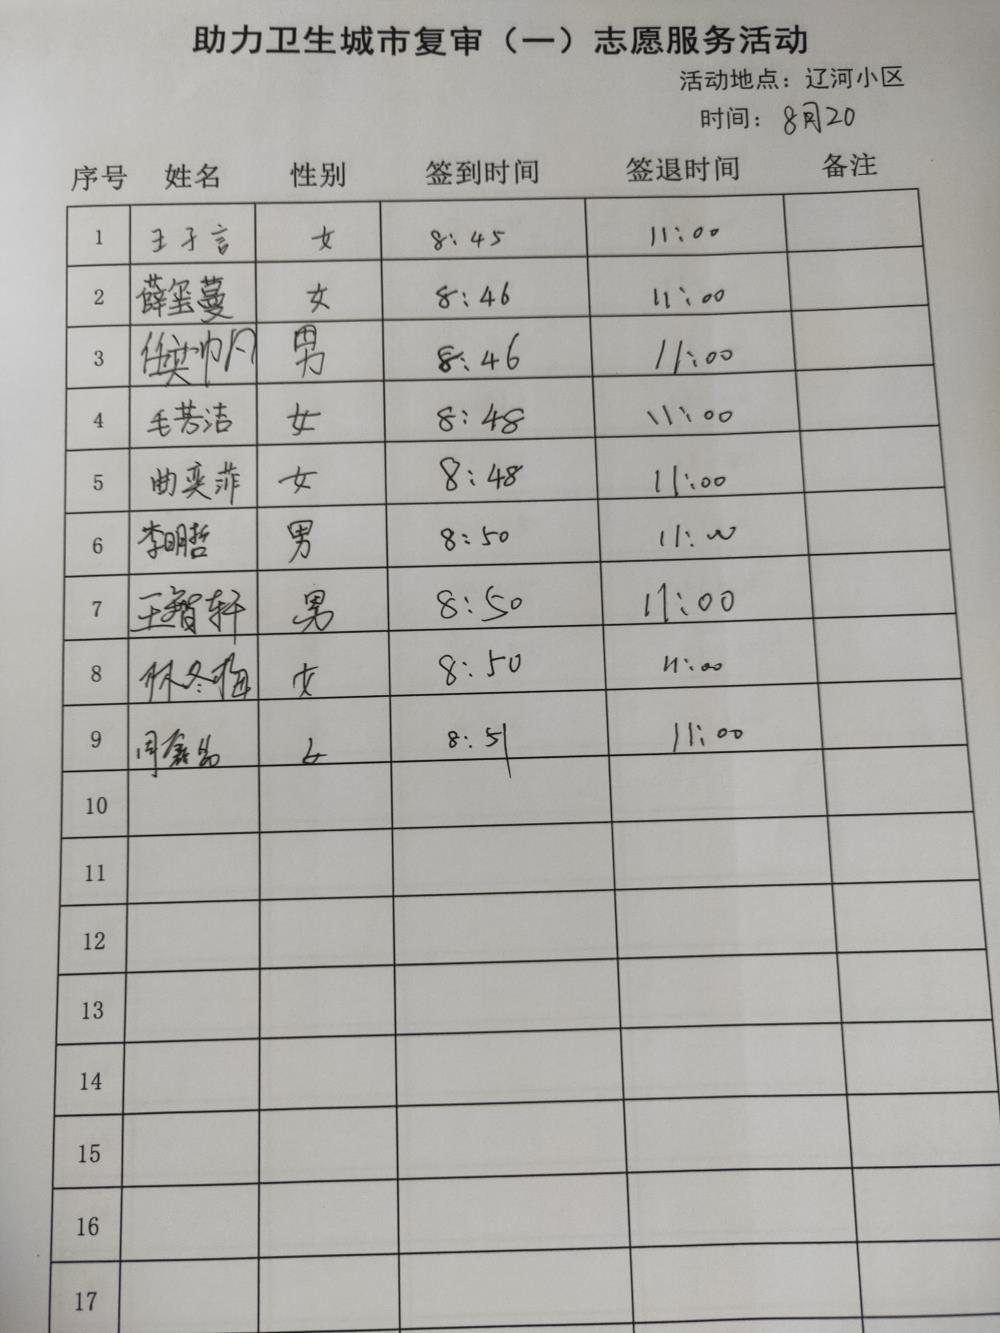 助力卫生城市复审（一）志愿服务活动
活动地点：辽河小区
时间：8月20
序号 姓名 性别 签到时间 签退时间 备注
1 王子言 女 8:45 11:00
2 薛玺蔓 女 8:46 11:00
3 男 8:46 11:00
4 毛芸洁 女 8:48 11:00
5 曲奕菲 女 8:48 11:00
6 李明哲 男 8:50 11:00
7 王智轩 男 8:50 11:00
8 林冬梅 女 8:50 11:00
9 女 8:51 11:00
10
11
12
13
14
15
16
17